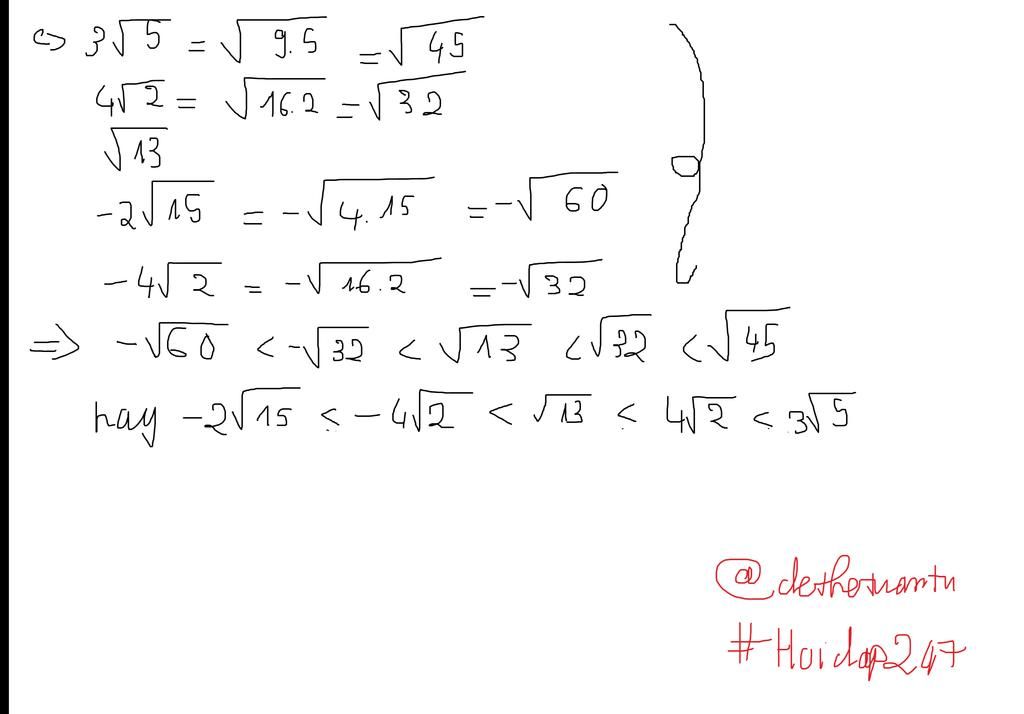 ⇔ 3√5 = √9.5 = √45
4√2 = √16.2 = √32
√13
-2√15 = -√4.15 = -√60
-4√2 = -√16.2 = -√32
⇒ -√60 < -√32 < √13 < √32 < √45
hay -2√15 < -4√2 < √13 < 4√2 < 3√5
#Hoidap247